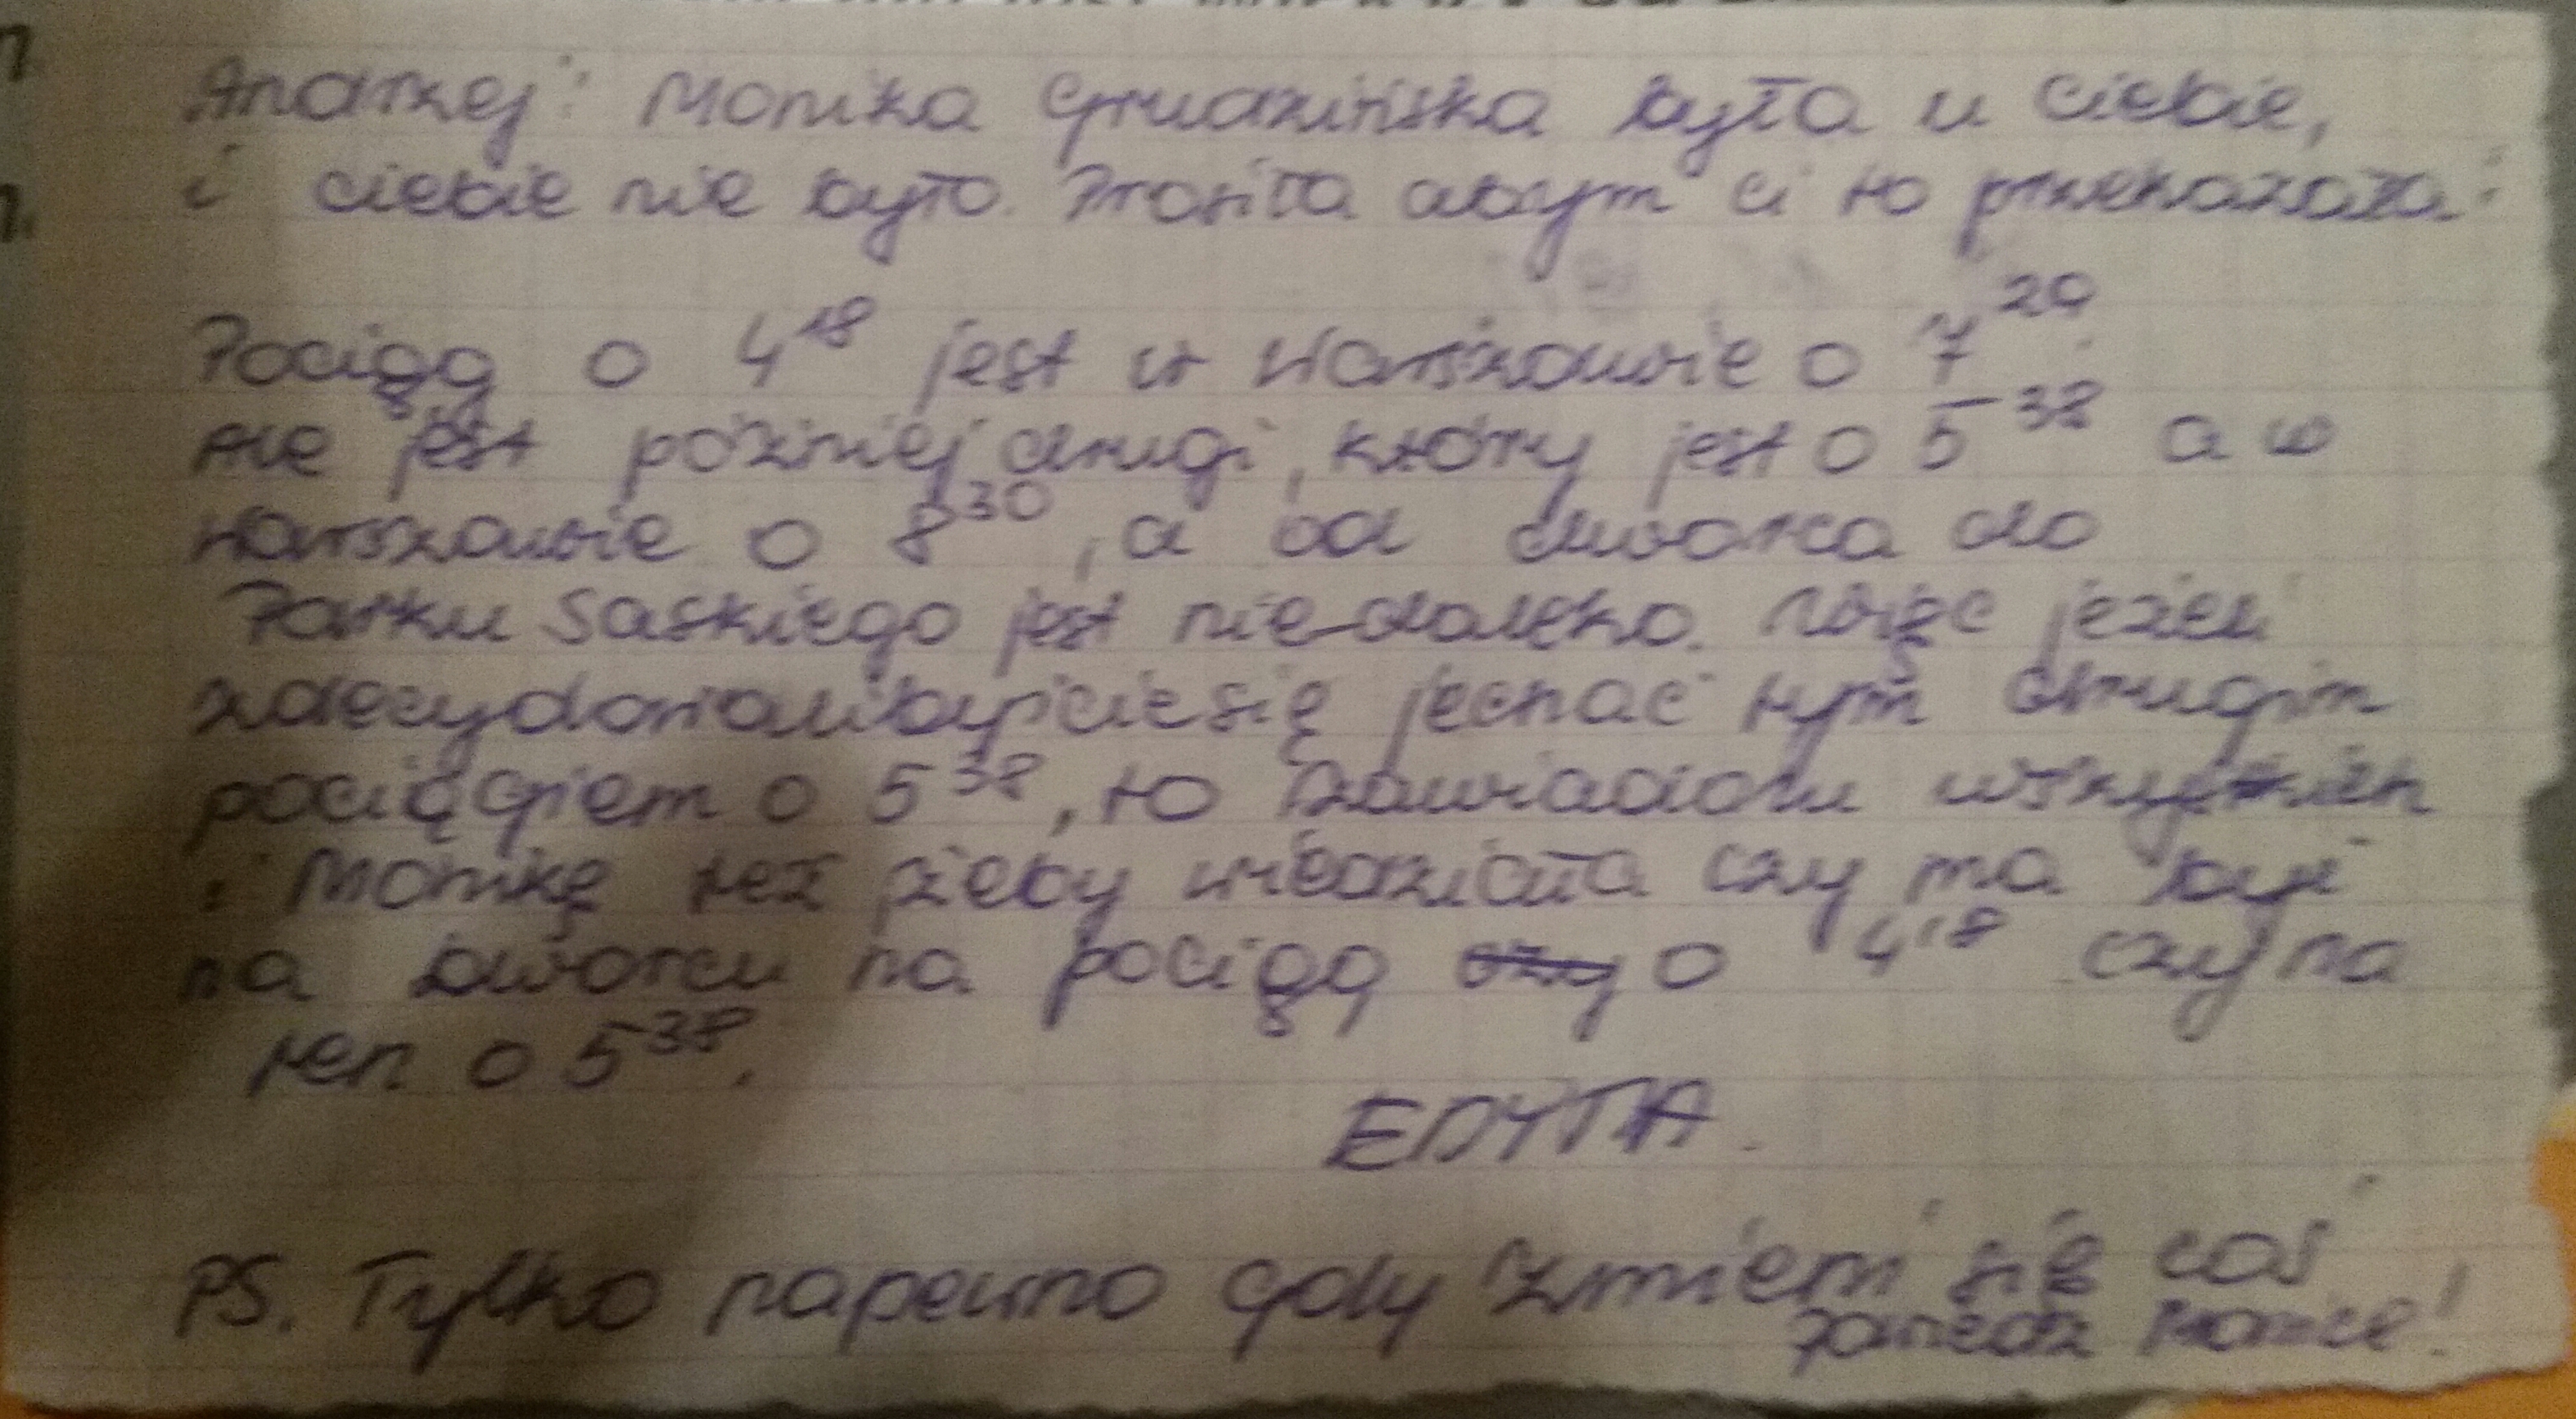 Andrzej: Monika Grudzińska była u ciebie,
i ciebie nie było. Prosiła abym ci to przekazała:
Pociąg o 4¹⁸ jest w Warszawie o 7²⁰.
Ale jest później drugi, który jest o 5³⁸ a w
Warszawie o 8³⁰, a od dworca do
Parku Saskiego jest nie-daleko. Więc jeżeli
zdecydowalibyście się jechać tym drugim
pociągiem o 5³⁸, to zawiadom wszystkich
i Monikę też żeby wiedziała czy ma być
na dworcu na pociąg o 4¹⁸ czy na
ten o 5³⁸.
EDYTA.
PS. Tylko napewno gdy zmieni się coś
powiedz Monice!